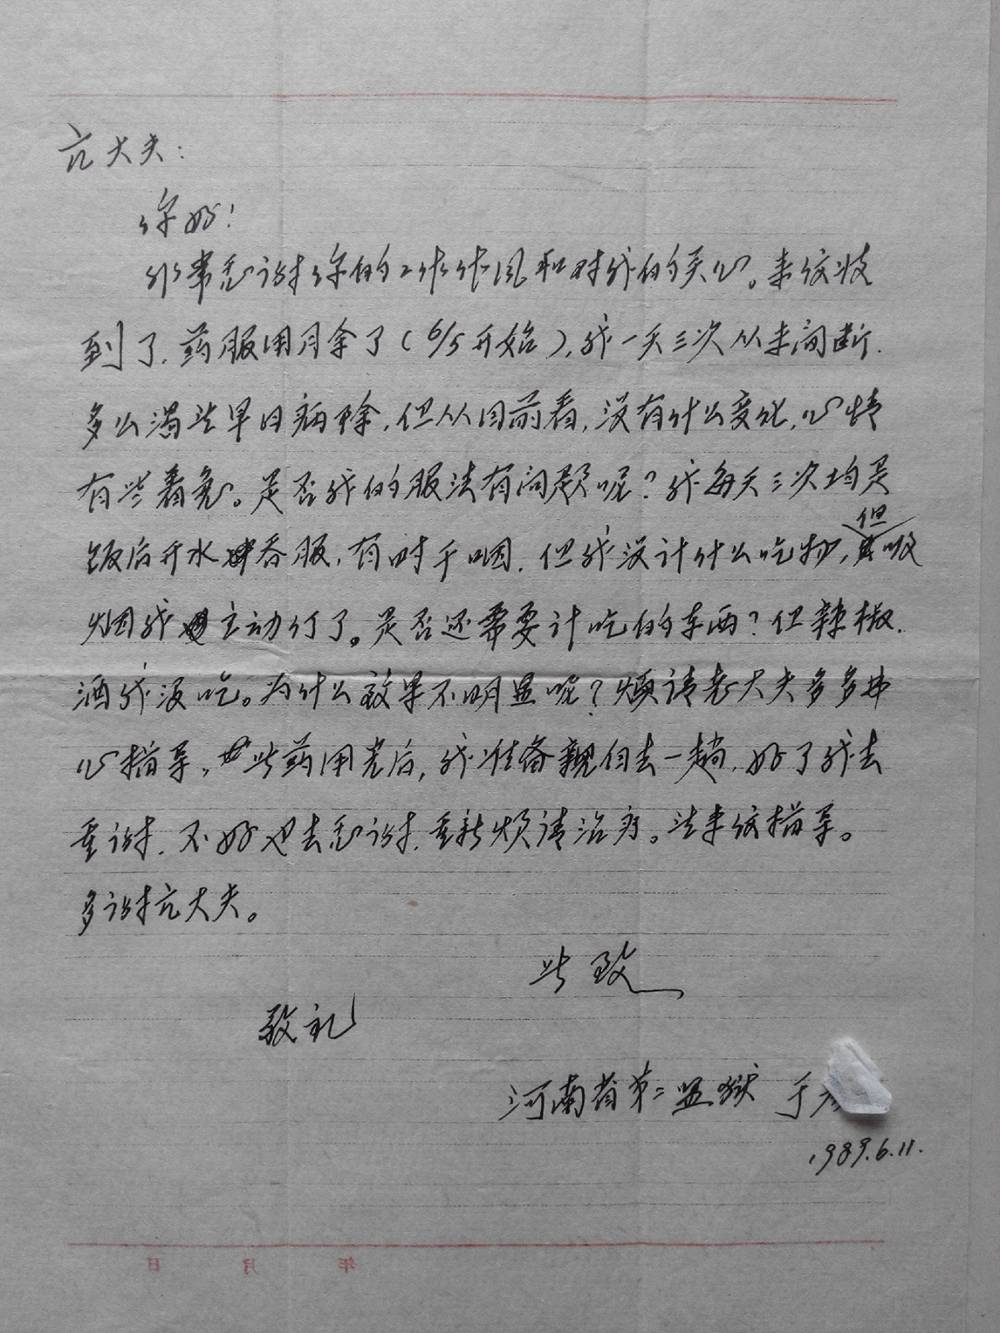 亢大夫：
你好！
非常感谢你的工作作风和对我的关心。来信收
到了，药服用月余了（6/5开始），我一天三次从未间断，
多么渴望早日病除，但从目前看，没有什么变化，心情
有些着急。是否我的服法有问题呢？我每天三次均是
饭后开水吞服，有时干咽，但我没计什么吃物，但吸
烟我主动停了。是否还需要计吃的东西？但辣椒、
酒我没吃。为什么效果不明显呢？烦请老大夫多多
心指导，此药用完后，我准备亲自去一趟，好了我去
重谢，不好也去感谢，重新烦请治疗。望来信指导。
多谢亢大夫。
此致
敬礼
河南省第二监狱 于
1989.6.11.
年 月 日